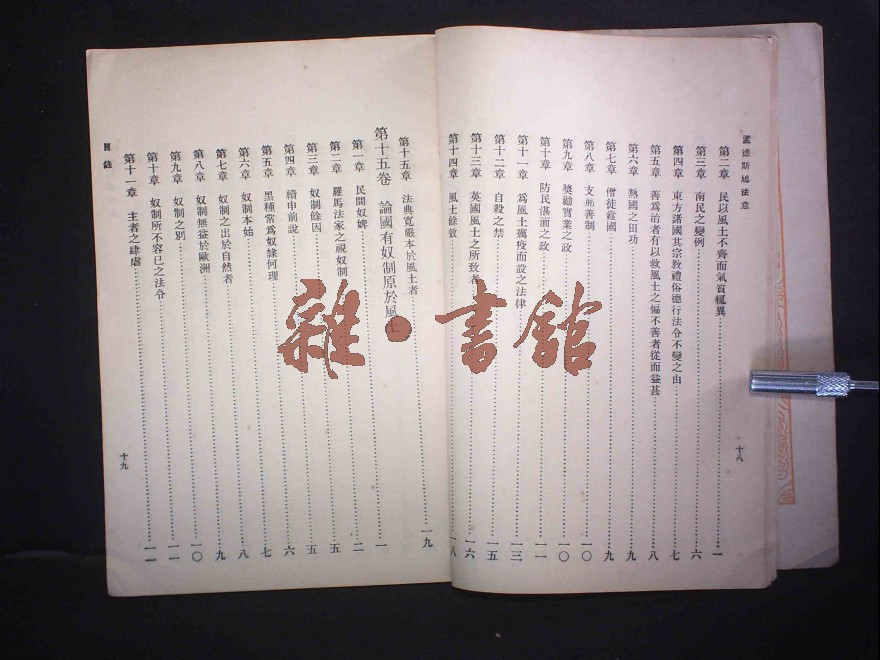 孟德斯鳩法意
第二章 民以風土不齊而氣質輒異 一
第三章 南民之變例 六
第四章 東方諸國其宗教禮俗德行法令不變之由 七
第五章 善爲治者有以救風土之偏不善者從而益甚 八
第六章 熱國之田功 九
第七章 僧徒寵國 九
第八章 支那善制 一〇
第九章 獎勸實業之政 一〇
第十章 防民湛湎之政 一一
第十一章 爲風土癘疫而設之法律 一三
第十二章 自殺之禁 一五
第十三章 英國風土之所致者 一六
第十四章 風土餘效 一八
十八
第十五章 法典寬嚴本於風土者 一九
第十五卷 論國有奴制原於風土 一
第一章 民間奴婢 二
第二章 羅馬法家之視奴制 五
第三章 奴制餘因 五
第四章 續申前說 六
第五章 黑種常爲奴隸何理 七
第六章 奴制本始 八
第七章 奴制之出於自然者 九
第八章 奴制無益於歐洲 一〇
第九章 奴制之別 一一
第十章 奴制所不容已之法令 一一
第十一章 主者之肆虐
目錄
十九
雜·書館